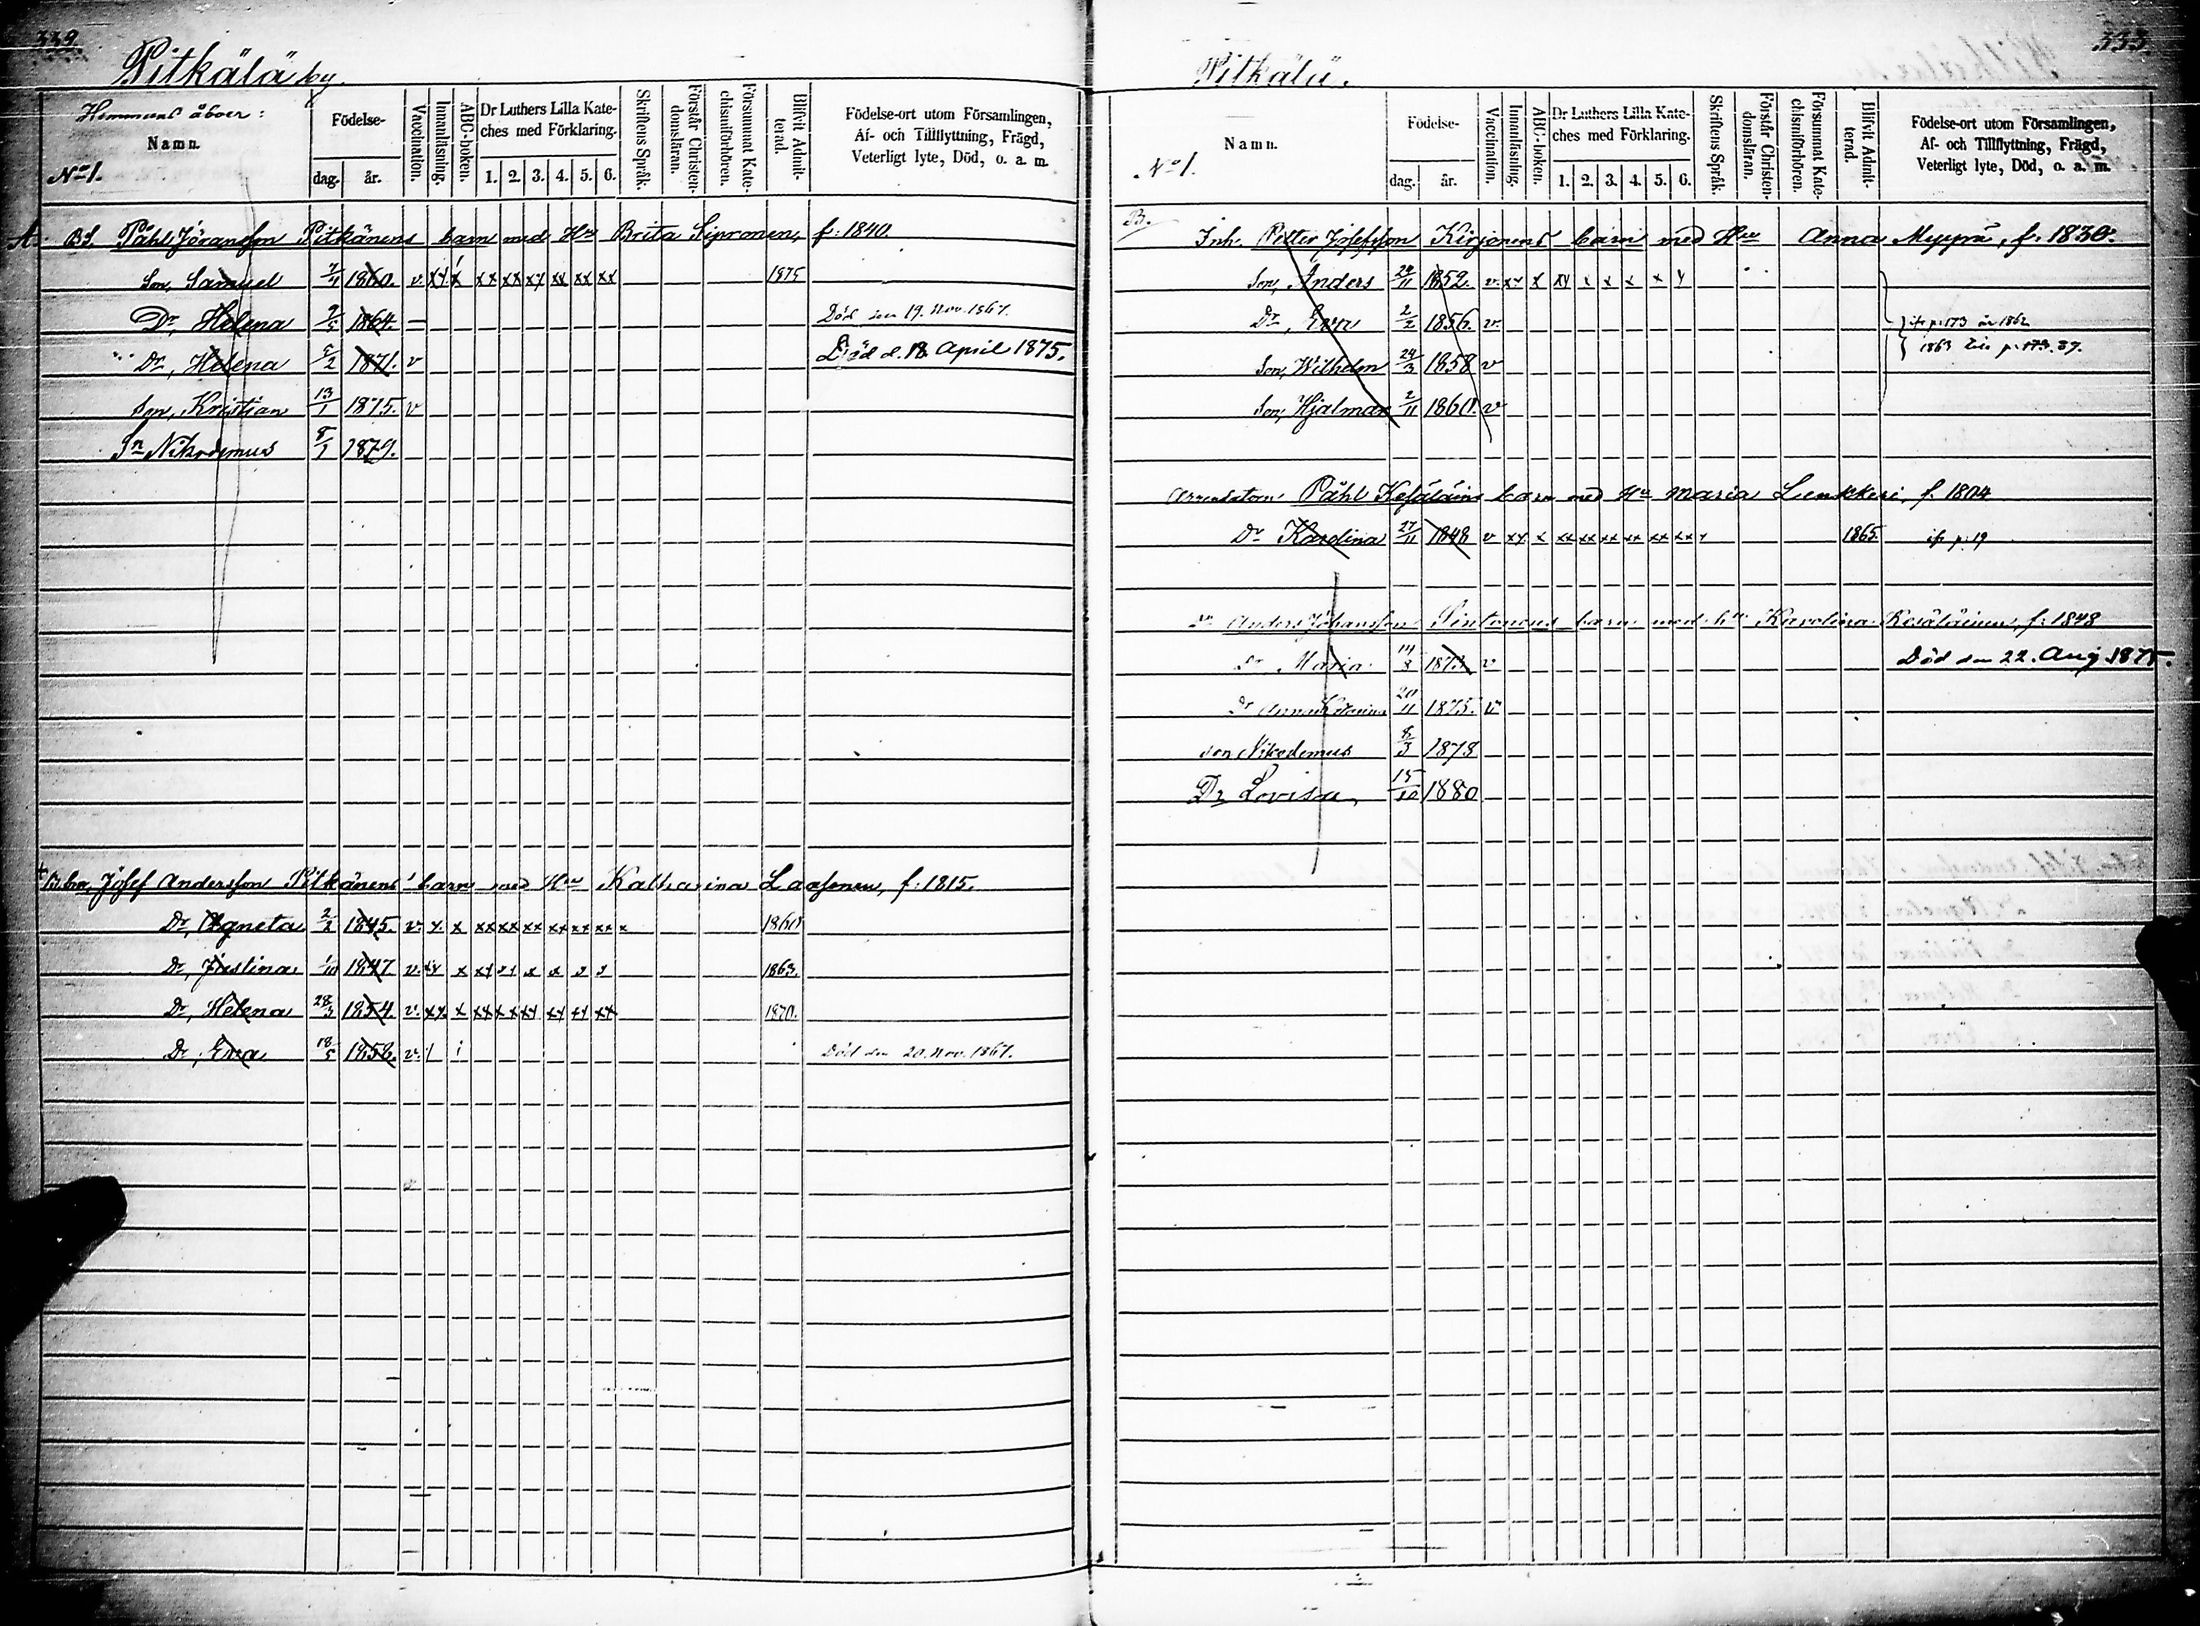 332.
Pitkälä by.
Hemmans åboer:
Namn.
No 1.
Födelse-
dag. år.
Vaccination.
Innanläsning.
ABC-boken.
Dr Luthers Lilla Kate-
ches med Förklaring.
1. 2. 3. 4. 5. 6.
Skriftens Språk.
Förstår Christen-
domsläran.
Försummat Kate-
chismiförhören.
Blifvit Admit-
terad.
Födelse-ort utom Församlingen,
Af- och Tillflyttning, Frägd,
Veterligt lyte, Död, o. a. m.
A. Påhl Jöransson Pitkänens barn med Hu Brita Sipronen, f. 1840.
Son, Samuel 1860. v 1875
Dr, Helena 9/5 1864. — Död den 19. Nov. 1867.
Dr, Helena 5/2 1871. v Död d. 18 April 1875.
Son, Kristian 13/1 1875. v
Sn Nikodemus 8/1 1879.
Josef Andersson Pitkänens barn med Hu Katharina Laasonen, f. 1815.
Dr, Agneta 2/2 1845. v. x x xx xx xx xx xx xx x 1860
Dr, Justina 1/10 1847 v. 1863.
Dr, Helena 28/3 1854 v. xx x 1870.
Dr, Eva 18/5 1858. v. Död den 20. Nov. 1867.
333
Pitkälä.
No 1.
Namn.
Födelse-
dag. år.
Vaccination.
Innanläsning.
ABC-boken.
Dr Luthers Lilla Kate-
ches med Förklaring.
1. 2. 3. 4. 5. 6.
Skriftens Språk.
Förstår Christen-
domsläran.
Försummat Kate-
chismiförhören.
Blifvit Admit-
terad.
Födelse-ort utom Församlingen,
Af- och Tillflyttning, Frägd,
Veterligt lyte, Död, o. a. m.
B.
Inh. Petter Josefsson Kirjonens barn med Hu Anna Myyrä, f. 1830.
Son, Anders 24/11 1852. v. xx x xx x x x x x
Dr, Eva 2/2 1856. v. p. 173 år 1862
Son, Wilhelm 24/3 1858 v 1863
Son, Hjalmar 2/11 1860. v
Arrendatorn Påhl Kesäläins barn med Hu Maria f. 1804
Dr Karolina 27/11 1848 v xx x xx xx xx xx xx xx 1865. p. 19
Anders Johansson Sintonens barn med Hu Karolina Kesäläinen, f. 1848
Dr Maria 1873. v Död den 22. Aug 1875.
Dr Anna 20/11 1875. v
son Nikodemus 8/3 1878
Dr Lovisa, 15/10 1880